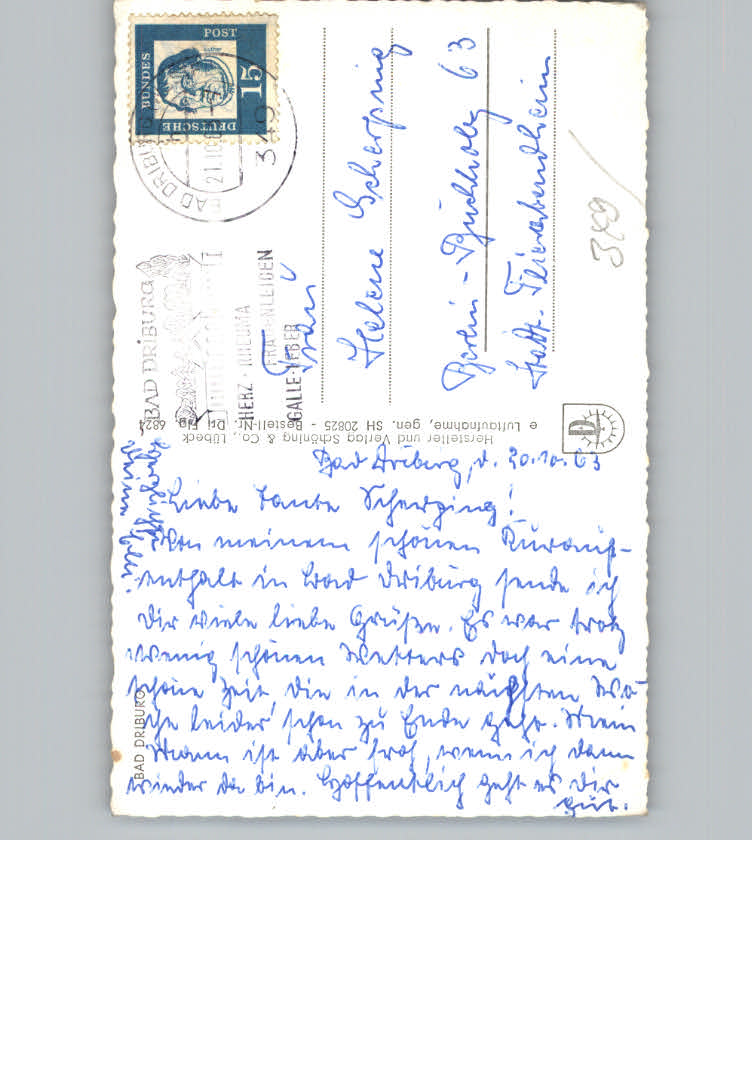 DEUTSCHE
BUNDES
POST
15
Luther
BAD DRIBURG
21.10.6
349
BAD DRIBURG
HERZ · RHEUMA
FRAUENLEIDEN
GALLE · LEBER
Frau
Helene Scherping
Berlin - Buchholz 63
Stadt. Feierabendheim
349
Hersteller und Verlag Schöning & Co., Lübeck
e Luftaufnahme, gen. SH 20825 - Bestell-Nr. Dri 6824
BAD DRIBURG
Bad Driburg, d. 20.10.63
Liebe Tante Scherping!
Von meinem schönen Kurauf-
enthalt in Bad Driburg sende ich
Dir viele liebe Grüße. Es war trotz
wenig schönen Wetters doch eine
schöne Zeit, die in der nächsten Wo-
che leider schon zu Ende geht. Mein
Mann ist aber froh, wenn ich dann
wieder da bin. Hoffentlich geht es Dir
gut.
Herzlichst
Deine